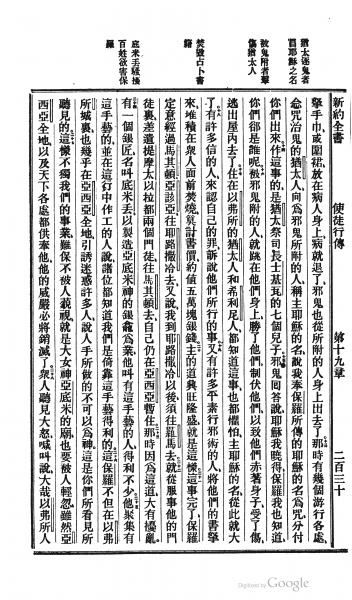 新約全書　使徒行傳　第十九章　二百三十
猶太逐鬼者
冒耶穌之名
被鬼附者擊
傷猶太人
焚燬占卜書
籍
底米丟騷擾
百姓欲害保
羅
擊手巾或圍裙放在病人身上病就退了邪鬼也從所附的人身上出去了那時有幾個游行各處
念咒治鬼的猶太人向爲邪鬼所附的人稱主耶穌的名說我奉保羅所傳的耶穌的名爲咒分付
你們出來作這事的是猶太祭司長士基瓦的七個兒子邪鬼回答說耶穌我曉得保羅我也知道
你們卻是誰呢被邪鬼附的人就跳在他們身上勝了他們制伏他們以致他們赤著身子受了傷
逃出屋內去了住在以弗所的猶太人和希利尼人都知道這事也都懼怕主耶穌的名從此就大
了有許多信的人來認自己的罪訴說他們所行的事又有許多平素行邪術的人將他們的書擊
來堆積在衆人面前焚燒與計書價約值五萬塊銀錢主的道興旺隆盛就是這樣這事完了保羅
定意經過馬其頓亞該亞往耶路撒冷去又說我到耶路撒冷以後須往羅馬去就從服事他的門
徒裏差遣提摩太以拉都兩個門徒往馬其頓去自己仍在亞西亞暫住那時因爲這道大有擾亂
有一個銀匠名叫底米丟以製造亞底米神的銀龕爲業他叫有這手藝的人得利不少他聚集有
這手藝的並在這行中作工的人說諸位都知道我們是倚靠這手藝得利的這保羅不但在以弗
所城裏也幾乎在亞西亞全地引誘迷惑許多人說人手所做的不可以爲神這是你們所看見所
聽見的這樣不獨我們的事業難保不被人藐視就是大女神亞底米的廟也要被人輕忽雖然亞
西亞全地以及天下各處都供奉他他的威嚴必將銷滅了衆人聽見大怒喊叫說大哉以弗所人
Digitized by Google